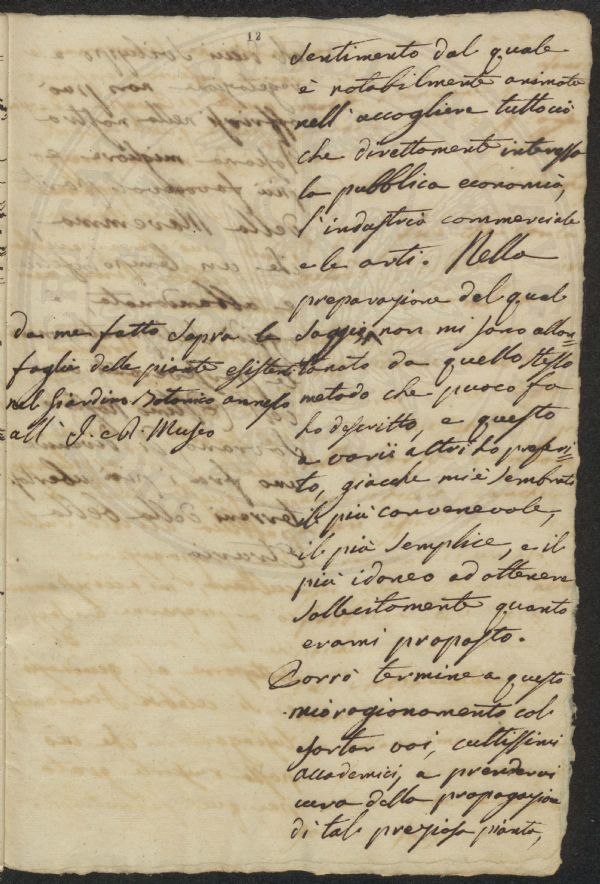 12
sentimento dal quale
è notabilmente animato
nell'accogliere tuttociò
che direttamente interessa
la pubblica economia,
l'industria commerciale
e le arti. Nella
preparazione del qual
saggio, non mi sono allon=
tanato da quello stesso
metodo che puoco fa
ho descritto, e questo
a varii altri ho preferi=
to, giacche mi è sembrato
il più convenevole,
il più semplice, e il
più idoneo ad ottenere
sollecitamente quanto
erami proposto.
Porrò termine a questo
mio ragionamento col
esortar voi, cultissimi
accademici, a prendervi
cura della propagazione
di tale preziosa pianta,
da me fatto sopra le
foglie delle piante esistenti
nel Giardino Botanico annesso
all' I. e R. Museo